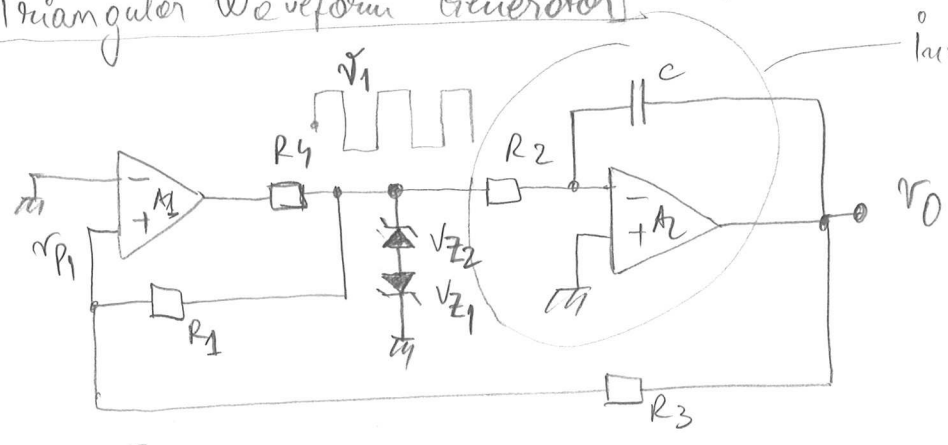 Triangular Waveform Generator
C
V1
R4
R2
A1
A2
VO
VP1
VZ2
VZ1
R1
R3